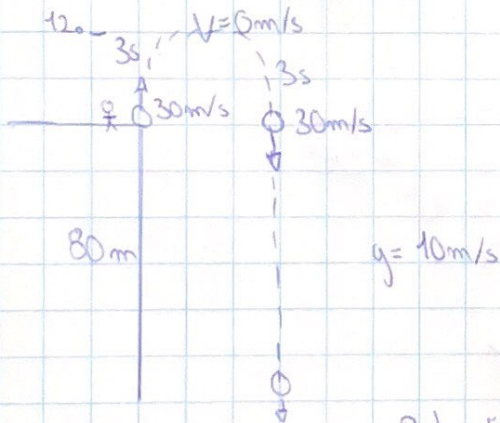 12.
V=0m/s
3s
3s
30m/s
30m/s
80m
g= 10m/s